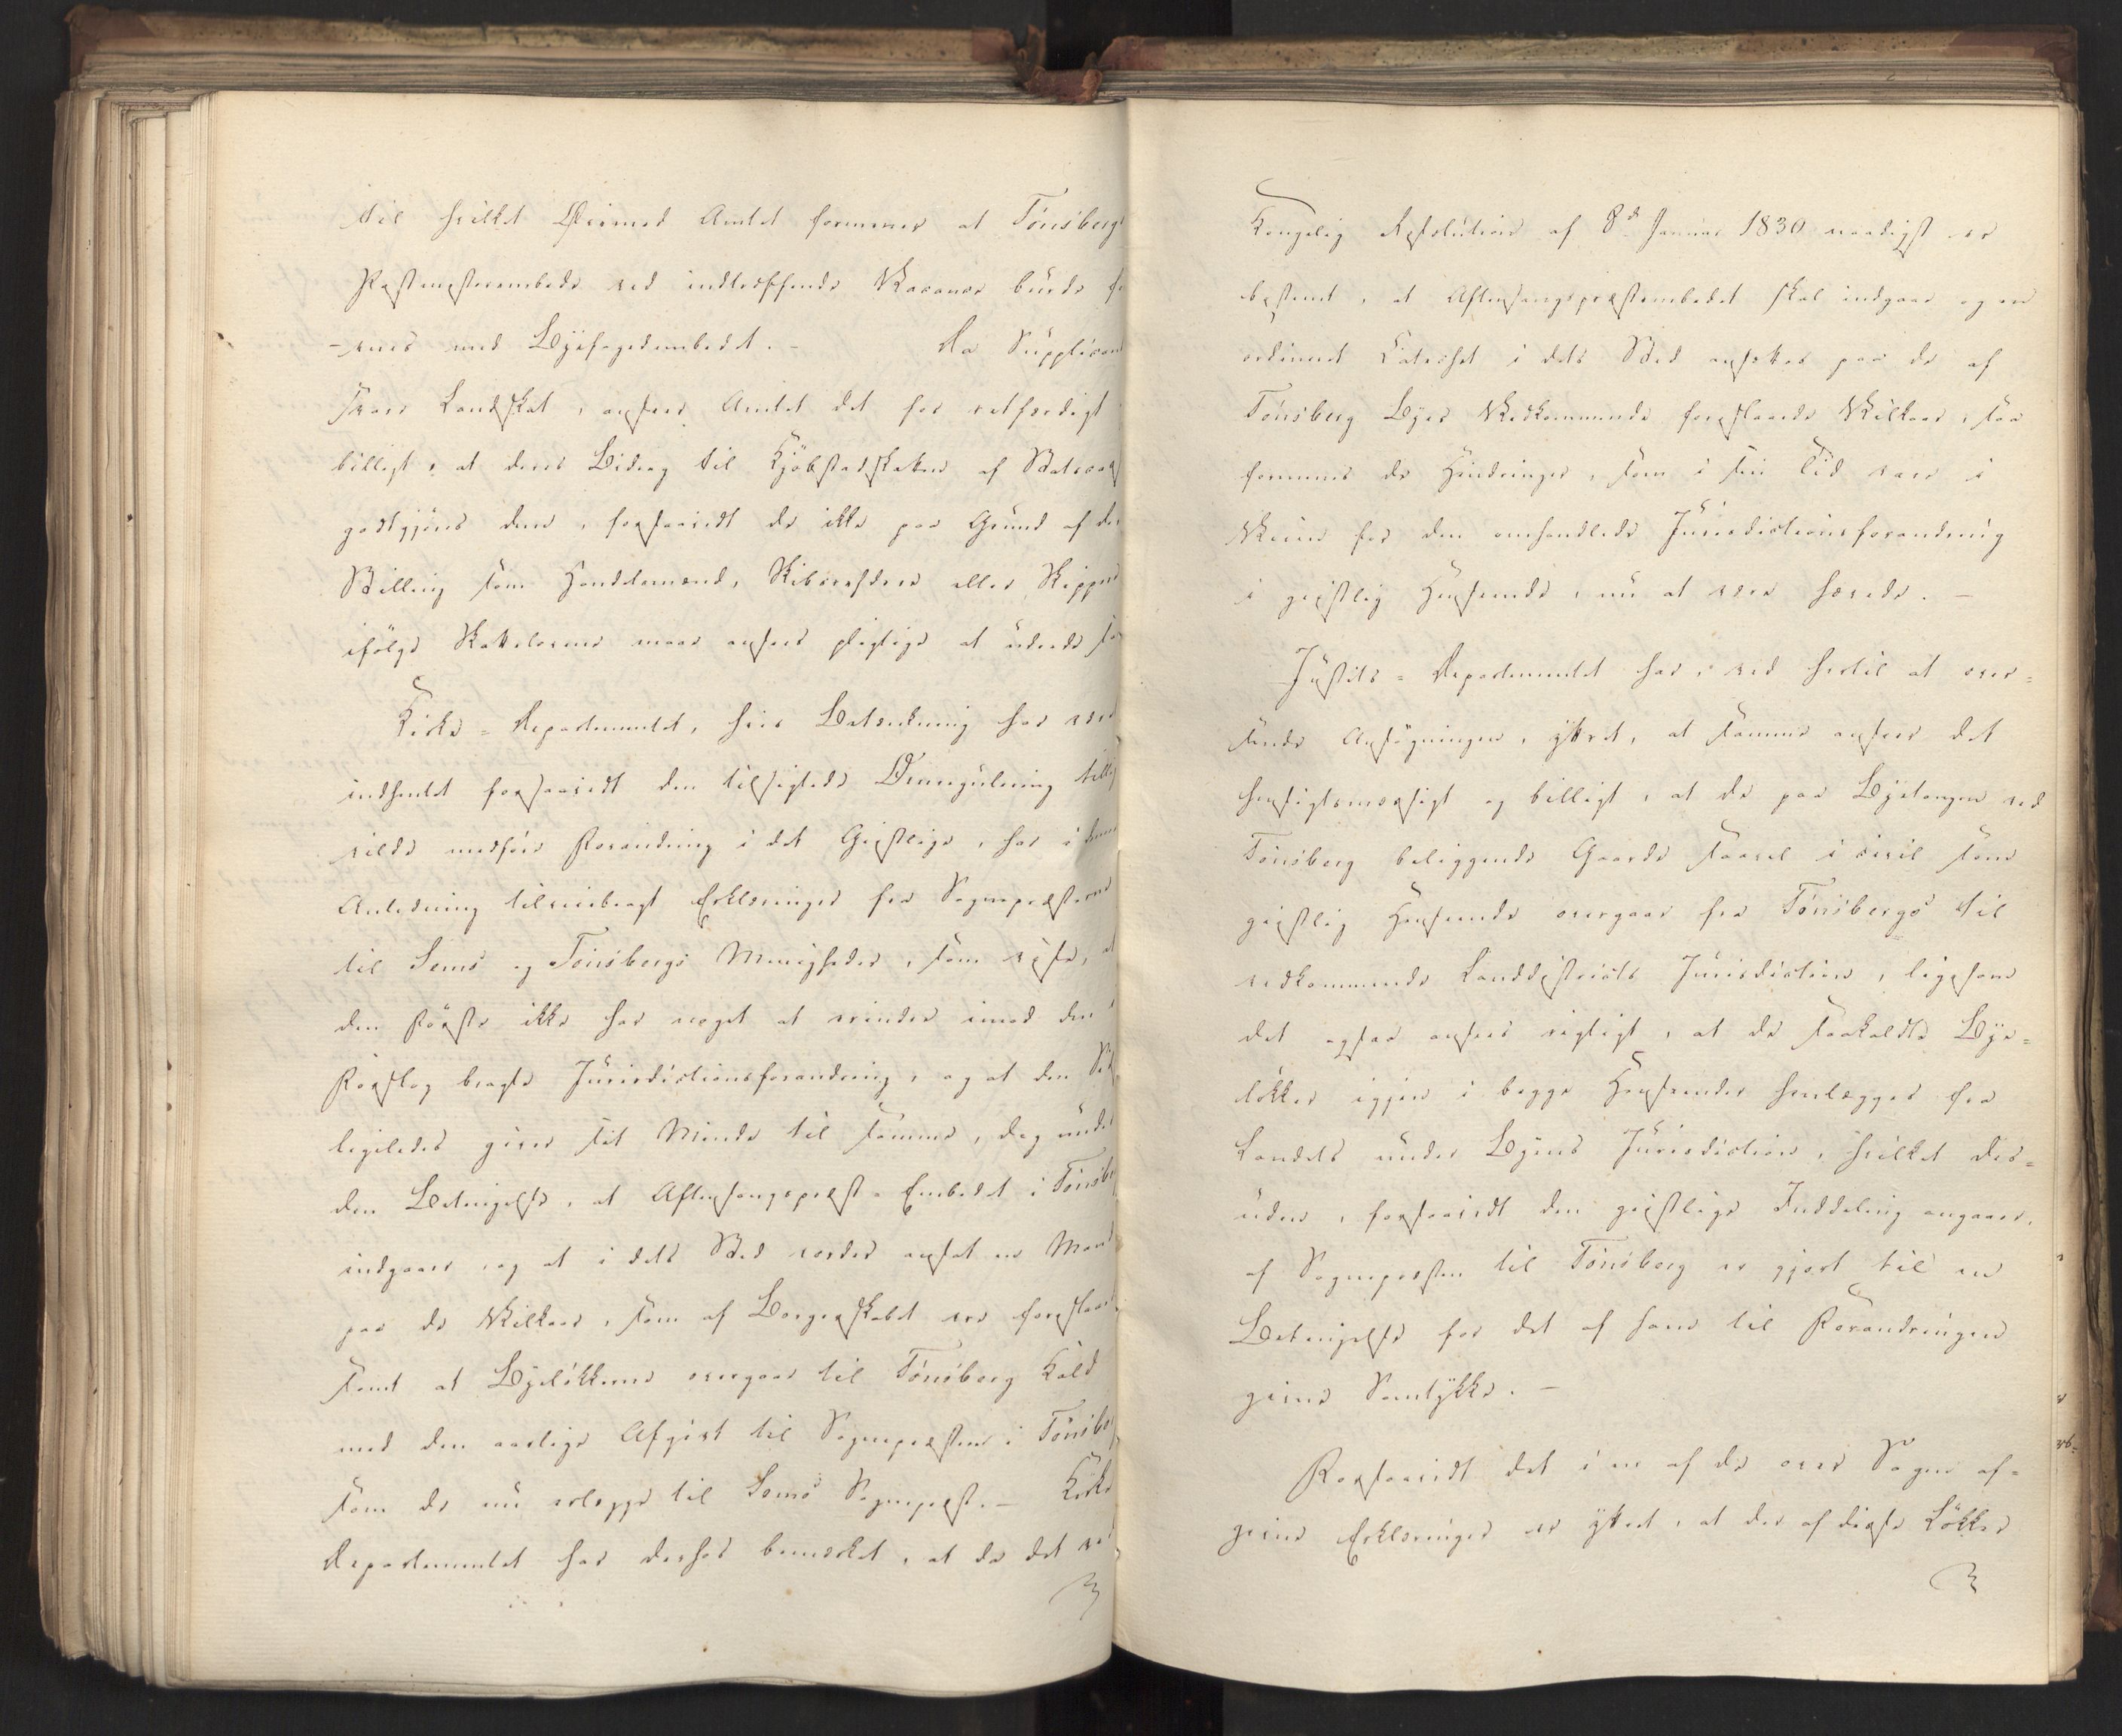 til hvilket Øiemed Amtet formener at Tönsbergs
Postmesterembede ved indtræffende Vacance burde fo
-renes med Byefogedembedet. - Da Supplicant
svare Landskat, anseer Amtet det for retfærdigt
billigt, at deres Bidrag til Kjöbstadskatten af
godtgjöres dem, forsaavidt de ikke paa Grund af de
Stilling som Handelsmænd, Skibsrehdere eller Skippere
ifölge Skatteloven maae ansees pligtige at udrede
Kirke-Departementet, hvis Betænkning har været
indhentet forsaavidt den tilsigtede Omregulering
vilde medföre Forandring i det Geistlige, har i denne
Anledning tilveiebragt Erklæringer fra Sognepræsterne
til Sems og Tönsbergs Menigheder, som vise, at
den Förste ikke har noget at erindre imod den i
Forslag bragte Jurisdictionsforandring, og at den
ligeledes giver sit Minde til samme, dog under
den Betingelse, at Aftensangspræst-Embedet i Tönsberg
indgaaer og at i dets Sted vorder ansat en Mand
paa de Vilkaar, som af Borgerskabet ere foreslaaet
samt at Byelökkerne overgaae til Tönsberg Kald
med den aarlige Afgivt til Sognepræsten i Tönsberg
som de nu erlægge til Sems Sognepræst. - Kirke
Departementet har derhos bemærket, at da det ved
Kongelig Resolution af 8de Januar 1830 naadigst er
bestemt, at Aftensangspræstembedet skal indgaae og en
ordineret Catechet i dets Sted ansættes paa de af
Tönsberg Byes Vedkommende foreslaaede Vilkaar, saa
formenes de Hindringer, som i sin Tid vare i
Veien for den omhandlede Jurisdictionsforandring
i geistlig Henseende, nu at være hævede. -
Justits-Departementet har, ved hertil at over=
sende Ansögningen, yttret, at samme anseer det
hensigtsmæssigt og billigt, at de paa Byetangen ved
Tönsberg beliggende Gaarde saavel i civil som
geistlig Henseende overgaae fra Tönsbergs til
vedkommende Landdistricts Jurisdiction, ligesom
det ogsaa ansees rigtigt, at de saakaldte Bye=
lökker igjen i begge Henseender henlægges fra
Landets under Byens Jurisdiction, hvilket des=
uden, forsaavidt den geistlige Inddeling angaaer,
af Sognepræsten til Tönsberg er gjort til en
Betingelse for det af ham til Forandringen
givne Samtykke. -
Forsaavidt det i en af de over Sagen af=
givne Erklæringer er yttret, at der af disse Lökker